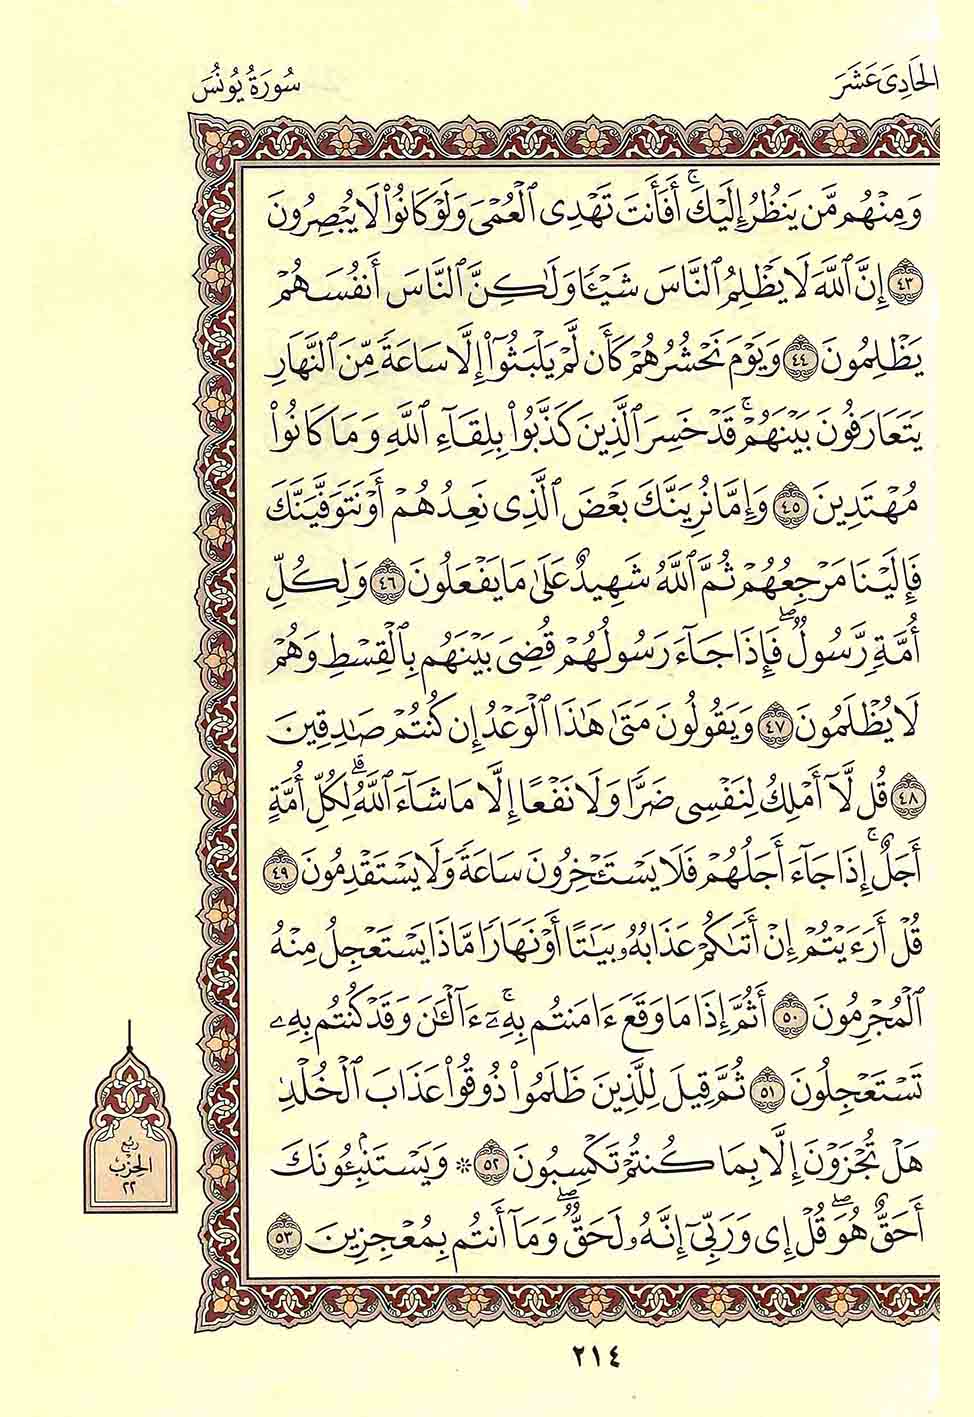 الحَادِى عَشَرَ
سُورَةُ يُونُسَ
وَمِنْهُم مَّن يَنظُرُ إِلَيْكَۚ أَفَأَنتَ تَهْدِى ٱلْعُمْىَ وَلَوْ كَانُوا۟ لَا يُبْصِرُونَ
٤٣ إِنَّ ٱللَّهَ لَا يَظْلِمُ ٱلنَّاسَ شَيْـًٔا وَلَـٰكِنَّ ٱلنَّاسَ أَنفُسَهُمْ
يَظْلِمُونَ ٤٤ وَيَوْمَ نَحْشُرُهُمْ كَأَن لَّمْ يَلْبَثُوٓا۟ إِلَّا سَاعَةً مِّنَ ٱلنَّهَارِ
يَتَعَارَفُونَ بَيْنَهُمْۚ قَدْ خَسِرَ ٱلَّذِينَ كَذَّبُوا۟ بِلِقَآءِ ٱللَّهِ وَمَا كَانُوا۟
مُهْتَدِينَ ٤٥ وَإِمَّا نُرِيَنَّكَ بَعْضَ ٱلَّذِى نَعِدُهُمْ أَوْ نَتَوَفَّيَنَّكَ
فَإِلَيْنَا مَرْجِعُهُمْ ثُمَّ ٱللَّهُ شَهِيدٌ عَلَىٰ مَا يَفْعَلُونَ ٤٦ وَلِكُلِّ
أُمَّةٍ رَّسُولٌۖ فَإِذَا جَآءَ رَسُولُهُمْ قُضِىَ بَيْنَهُم بِٱلْقِسْطِ وَهُمْ
لَا يُظْلَمُونَ ٤٧ وَيَقُولُونَ مَتَىٰ هَـٰذَا ٱلْوَعْدُ إِن كُنتُمْ صَـٰدِقِينَ
٤٨ قُل لَّآ أَمْلِكُ لِنَفْسِى ضَرًّا وَلَا نَفْعًا إِلَّا مَا شَآءَ ٱللَّهُۗ لِكُلِّ أُمَّةٍ
أَجَلٌۚ إِذَا جَآءَ أَجَلُهُمْ فَلَا يَسْتَـْٔخِرُونَ سَاعَةً وَلَا يَسْتَقْدِمُونَ ٤٩
قُلْ أَرَءَيْتُمْ إِنْ أَتَىٰكُمْ عَذَابُهُۥ بَيَـٰتًا أَوْ نَهَارًا مَّاذَا يَسْتَعْجِلُ مِنْهُ
ٱلْمُجْرِمُونَ ٥٠ أَثُمَّ إِذَا مَا وَقَعَ ءَامَنتُم بِهِۦٓۚ ءَآلْـَٔـٰنَ وَقَدْ كُنتُم بِهِۦ
تَسْتَعْجِلُونَ ٥١ ثُمَّ قِيلَ لِلَّذِينَ ظَلَمُوا۟ ذُوقُوا۟ عَذَابَ ٱلْخُلْدِ
هَلْ تُجْزَوْنَ إِلَّا بِمَا كُنتُمْ تَكْسِبُونَ ٥٢ ۞ وَيَسْتَنۢبِـُٔونَكَ
أَحَقٌّ هُوَۖ قُلْ إِى وَرَبِّىٓ إِنَّهُۥ لَحَقٌّۖ وَمَآ أَنتُم بِمُعْجِزِينَ ٥٣
ربع
الحزب
٢٢
٢١٤